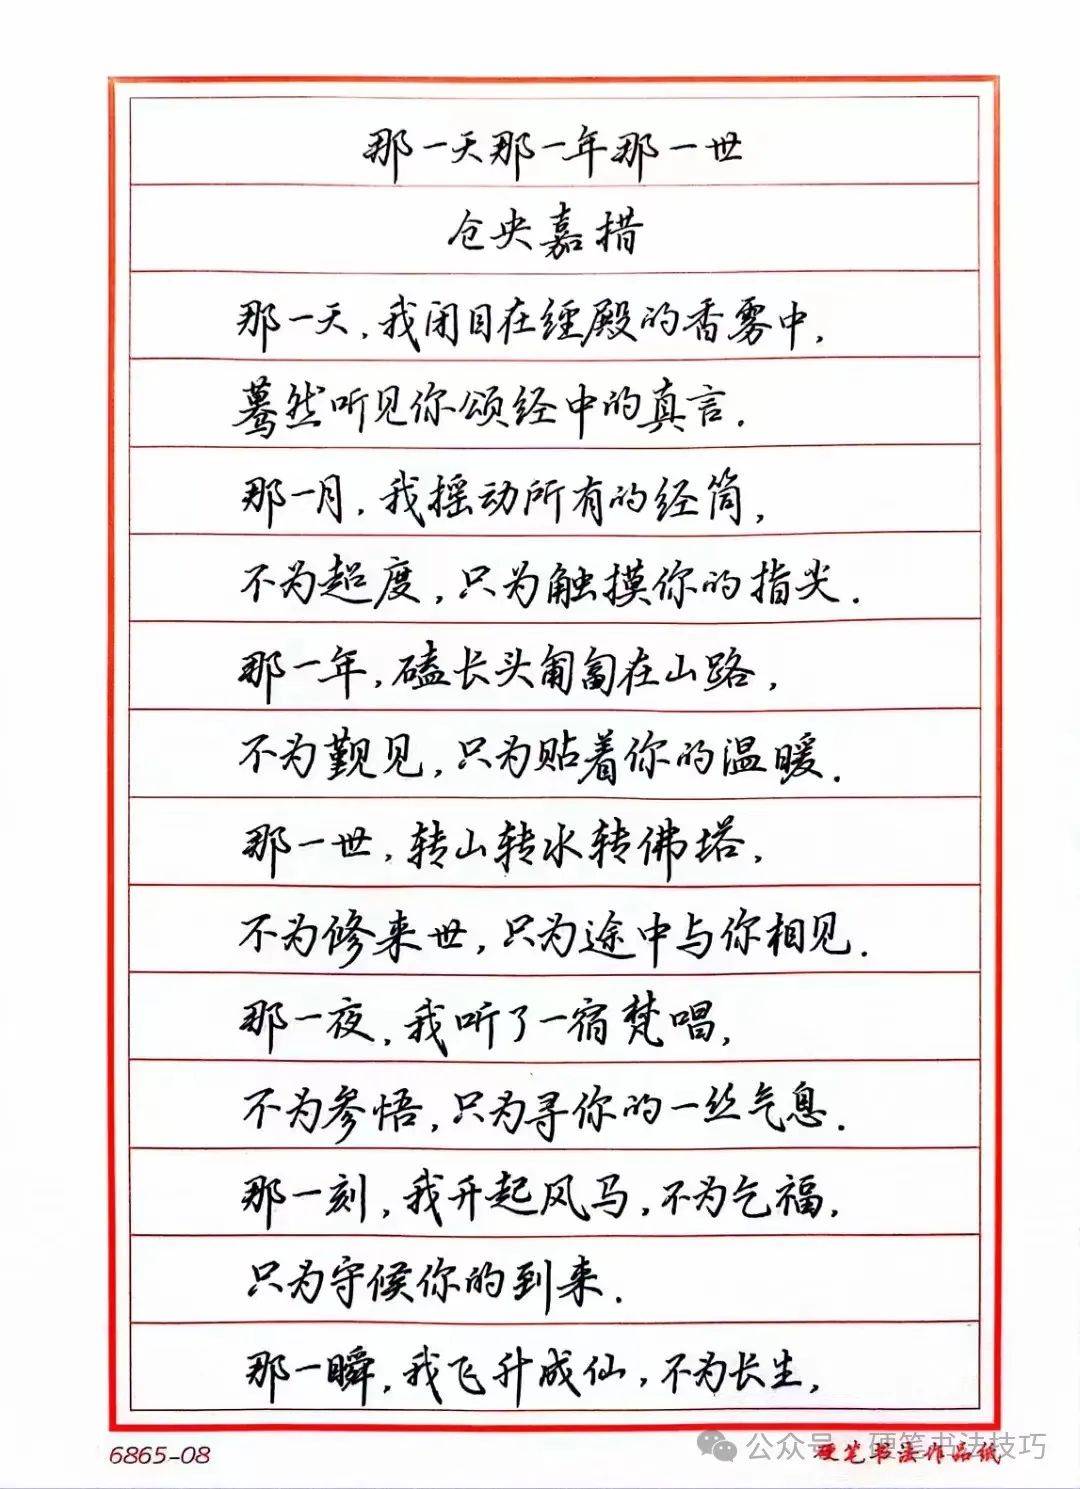 那一天那一年那一世
仓央嘉措
那一天，我闭目在经殿的香雾中，
蓦然听见你颂经中的真言．
那一月，我摇动所有的经筒，
不为超度，只为触摸你的指尖．
那一年，磕长头匍匐在山路，
不为觐见，只为贴着你的温暖．
那一世，转山转水转佛塔，
不为修来世，只为途中与你相见．
那一夜，我听了一宿梵唱，
不为参悟，只为寻你的一丝气息．
那一刻，我升起风马，不为乞福，
只为守候你的到来．
那一瞬，我飞升成仙，不为长生，
6865-08
公众号·硬笔书法技巧
硬笔书法作品纸